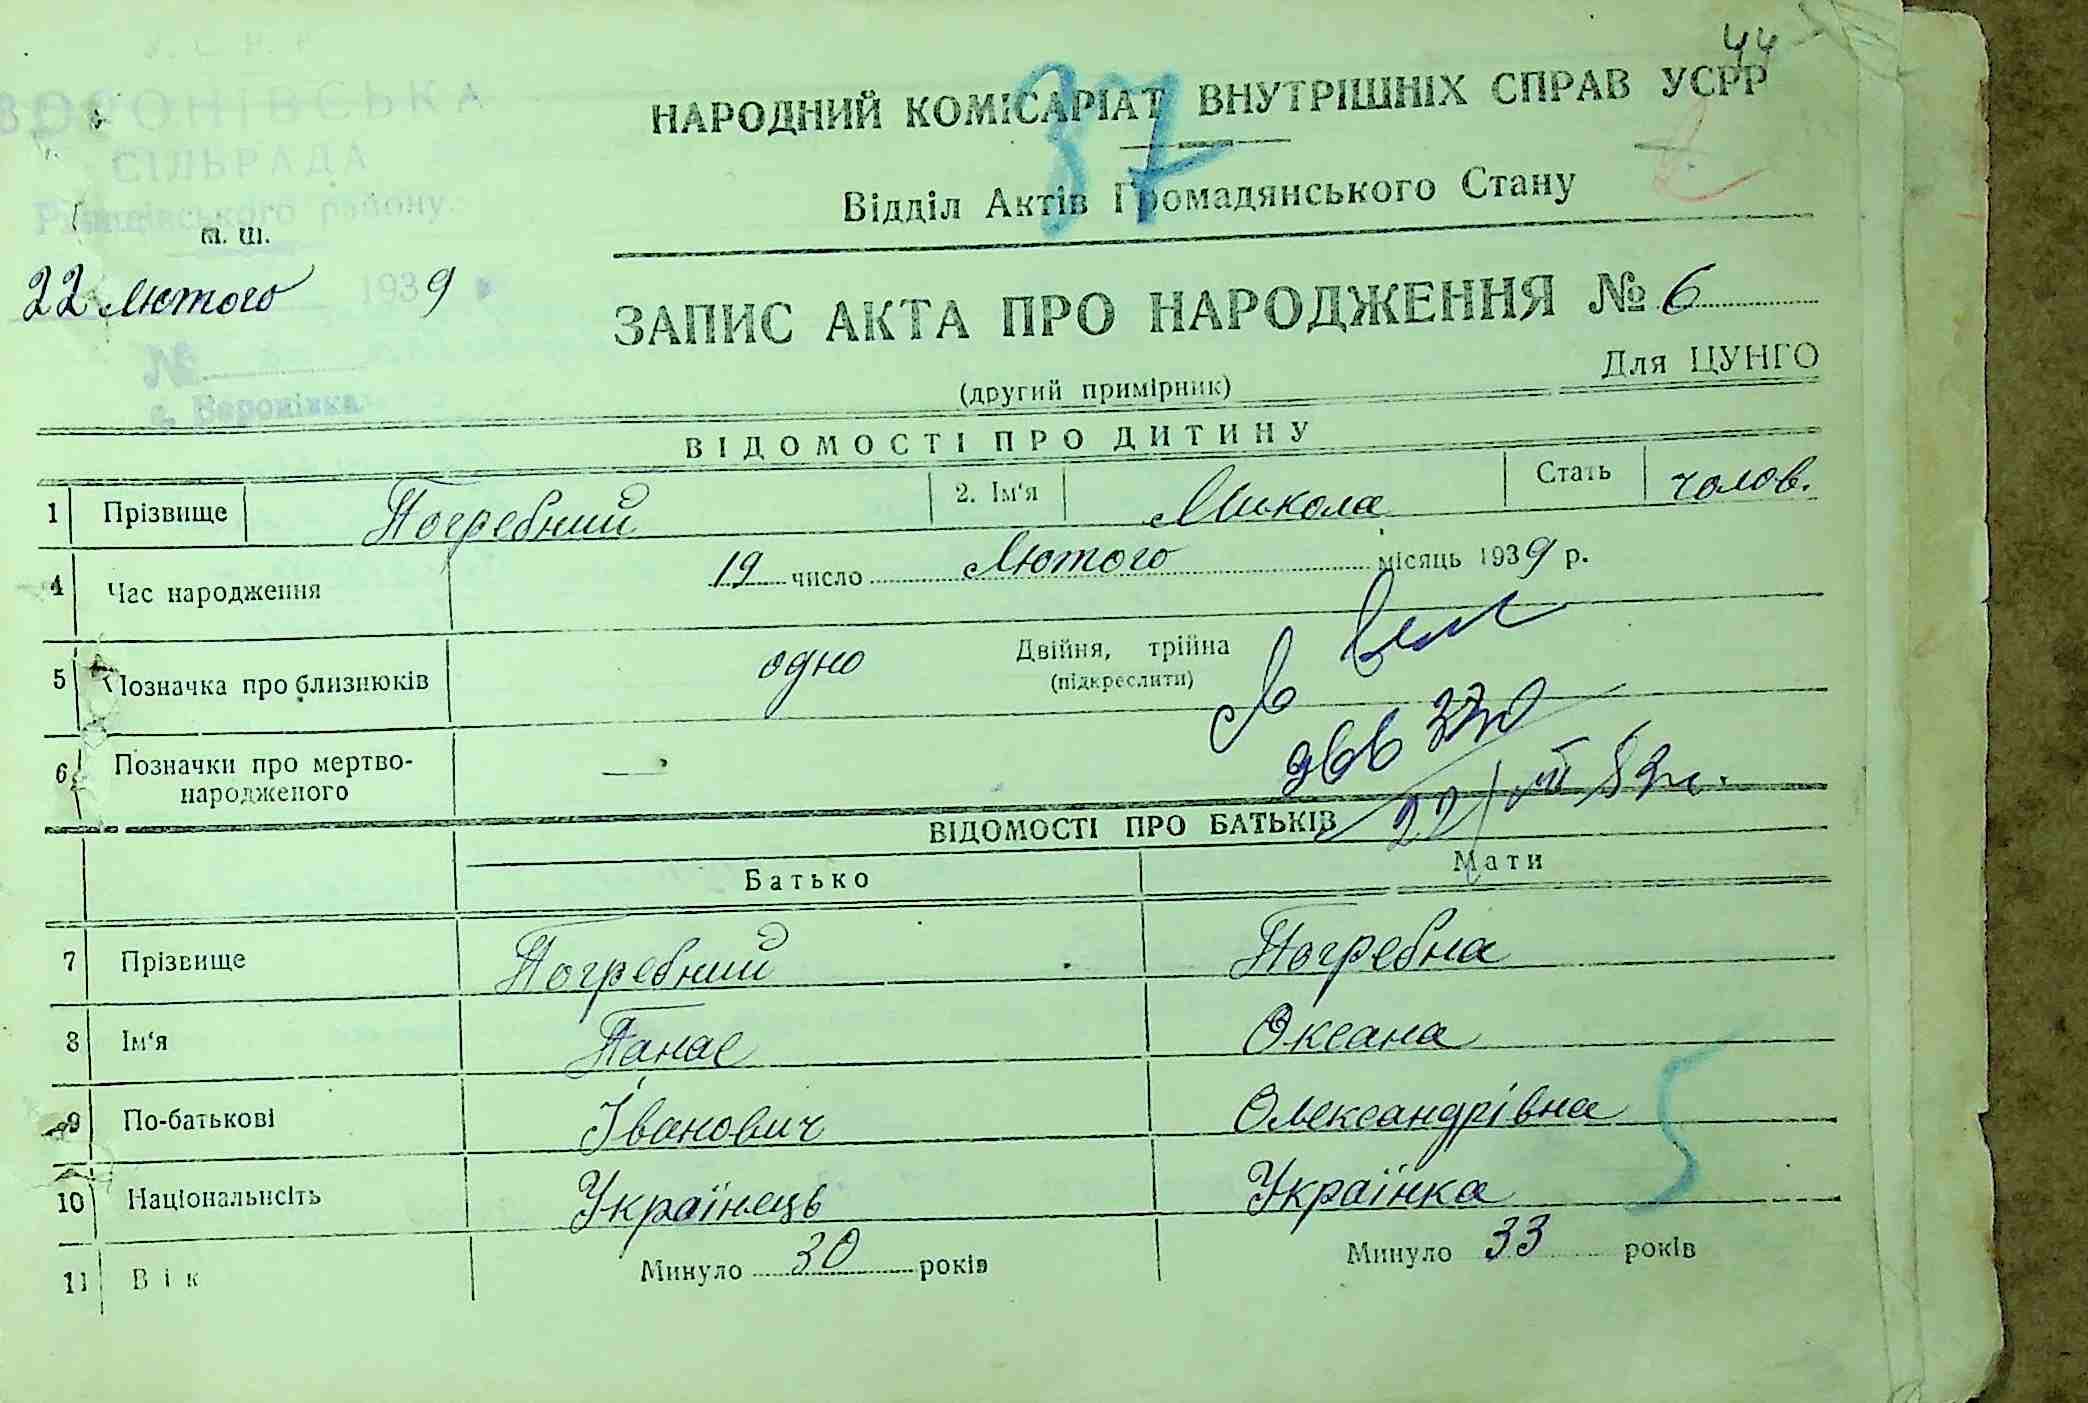 44
У. С. Р. Р.
ВОРОНІВСЬКА
СІЛЬРАДА
Ржищівського району
м. ш.
22 Лютого 1939
№
с. Воронівка
37
НАРОДНИЙ КОМІСАРІАТ ВНУТРІШНІХ СПРАВ УСРР
Відділ Актів Громадянського Стану
ЗАПИС АКТА ПРО НАРОДЖЕННЯ № 6
(другий примірник) Для ЦУНГО
ВІДОМОСТІ ПРО ДИТИНУ
1 Прізвище Погребний 2. Ім'я Микола Стать чолов.
4 Час народження 19 число Лютого місяць 1939 р.
5 Позначка про близнюків одно Двійня, трійна
(підкреслити)
6 Позначки про мертво-
народженого —
ВІДОМОСТІ ПРО БАТЬКІВ
Батько Мати
7 Прізвище Погребний Погребна
8 Ім'я Панас Оксана
9 По-батькові Іванович Олександрівна
10 Національність Українець Українка
11 Вік Минуло 30 років Минуло 33 років